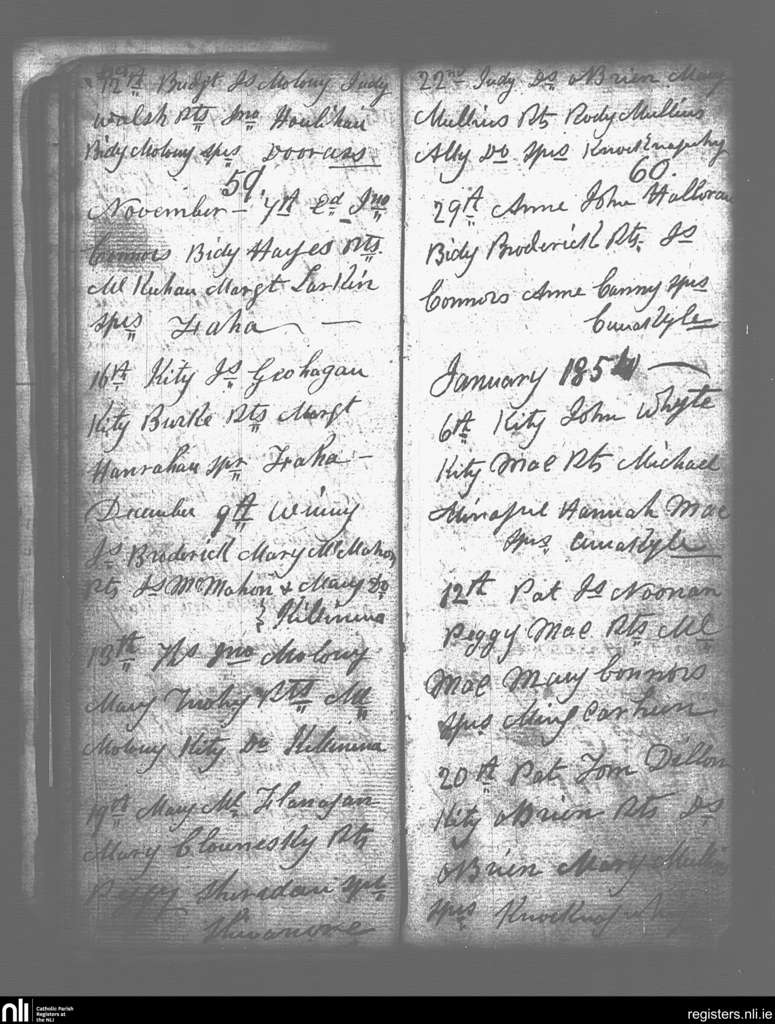 12th Bridgt Js Molony Judy
Walsh Pts Jno Houlihan
Bidy Molony Sprs Doorass
59
November – 7th Ed Jno
Connors Bidy Hayes Pts
Ml Kuhau Margt Larkin
Sprs Fraha
16th Kity Js Geohagan
Kity Burke Pts Margt
Hanrahan Spr Fraha –
December 9th Winny
Js Broderick Mary McMahon
Pts Js McMahon & Mary Do
Killinena
13th Jno Molony
Mary Tuohy Pts Ml
Molony Kity Do Killinena
19th Mary Ml Flanagan
Mary Clounesky Pts
Peggy Sheradan Sprs
22nd Judy Ds OBrien Mary
Mullins Pts Rody Mullins
Ally Do Sprs Knocknapehy
60.
29th Anne John Halloran
Bidy Broderick Pts. Js
Connors Anne Canny Sprs
January 1854
6th Kity John Whyte
Kity Mac Pts Michael
Hannah Mac
Sprs
12th Pat Js Noonan
Peggy Mac Pts Ml
Mac Mary Connors
Sprs
20th Pat Tom Dillon
Kity OBrien Pts Ds
OBrien Mary Mullins
Sprs
nli
Catholic Parish
Registers at
the NLI
registers.nli.ie